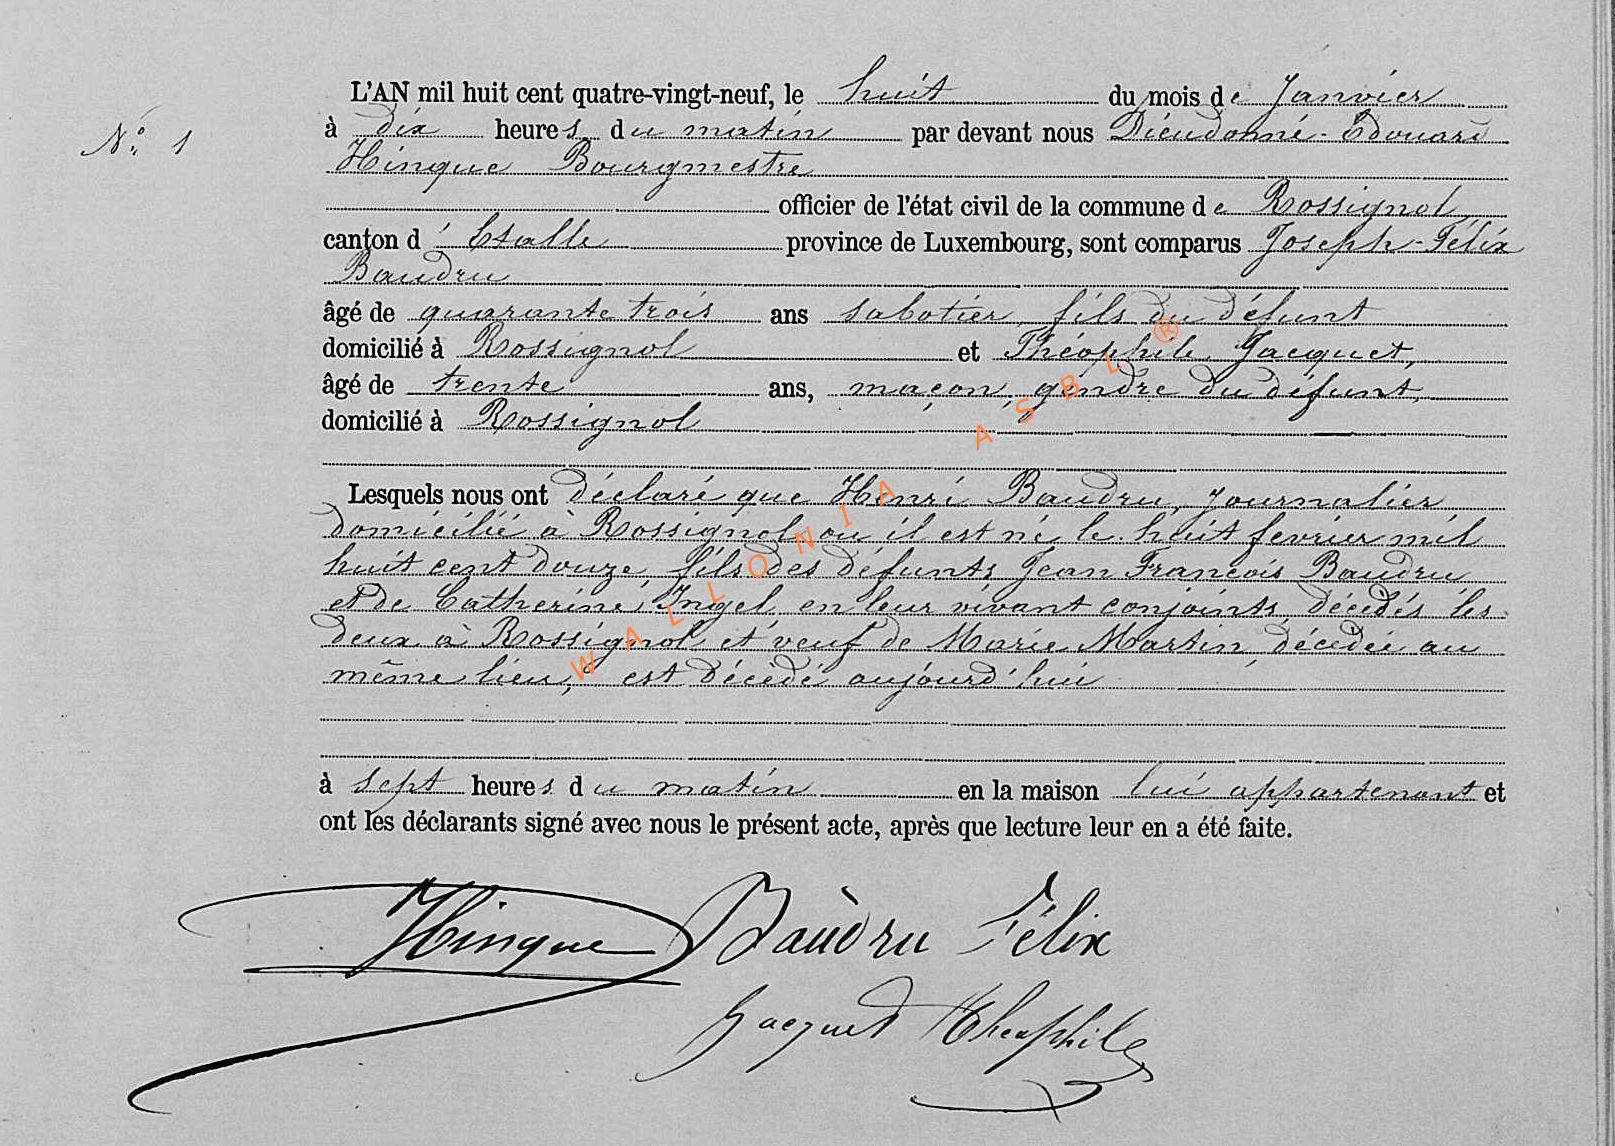 L'AN mil huit cent quatre-vingt-neuf, le huit du mois de Janvier
N° 1
à dix heures du matin par devant nous Dieudonné-Edouard
Hinque Bourgmestre
officier de l'état civil de la commune de Rossignol
canton d'Etalle province de Luxembourg, sont comparus Joseph-Félix
Baudru
âgé de quarante trois ans sabotier, fils du défunt
domicilié à Rossignol et Théophile Jacquet,
âgé de trente ans, maçon, gendre du défunt,
domicilié à Rossignol
Lesquels nous ont déclaré que Henri Baudru, journalier
domicilié à Rossignol ou il est né le huit fevrier mil
huit cent douze, fils des défunts Jean François Baudru
et de Catherine Ingel, en leur vivant conjoints, décédés les
deux à Rossignol et veuf de Marie Martin, décédée au
même lieu, est décédé aujourd'hui
à sept heures du matin en la maison lui appartenant et
ont les déclarants signé avec nous le présent acte, après que lecture leur en a été faite.
Hinque Baudru Félix
Jacquet Théophile
WALLONIA ASBL ®